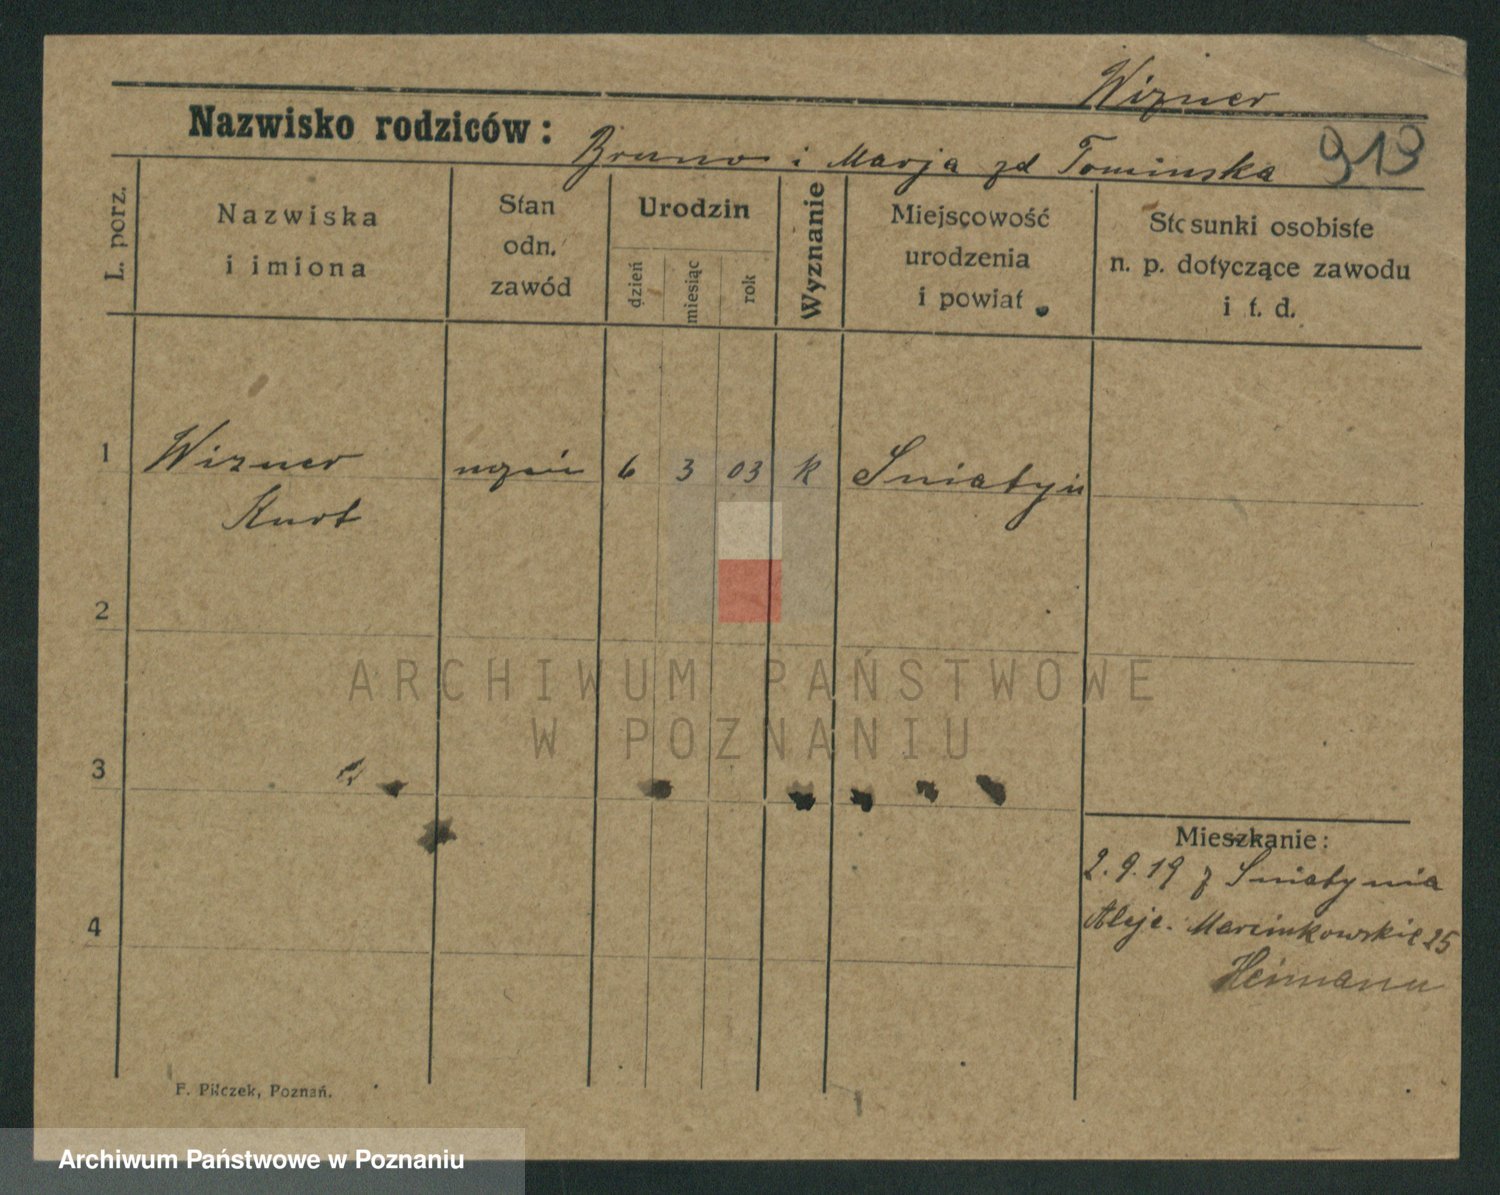 Wizner
Nazwisko rodziców: Bruno i Marja zd Tominska 919
L. porz.
Nazwiska
i imiona
Stan
odn.
zawód
Urodzin
dzień
miesiąc
rok
Wyznanie
Miejscowość
urodzenia
i powiat
Stosunki osobiste
n. p. dotyczące zawodu
i t. d.
1 Wizner 6 3 03 k Sniatyń
Kurt
2
ARCHIWUM PAŃSTWOWE
W POZNANIU
3
Mieszkanie:
2.9.19 z Sniatynia
4 Aleje. Marcinkowskie 25
Heimann
F. Pilczek, Poznań.
Archiwum Państwowe w Poznaniu